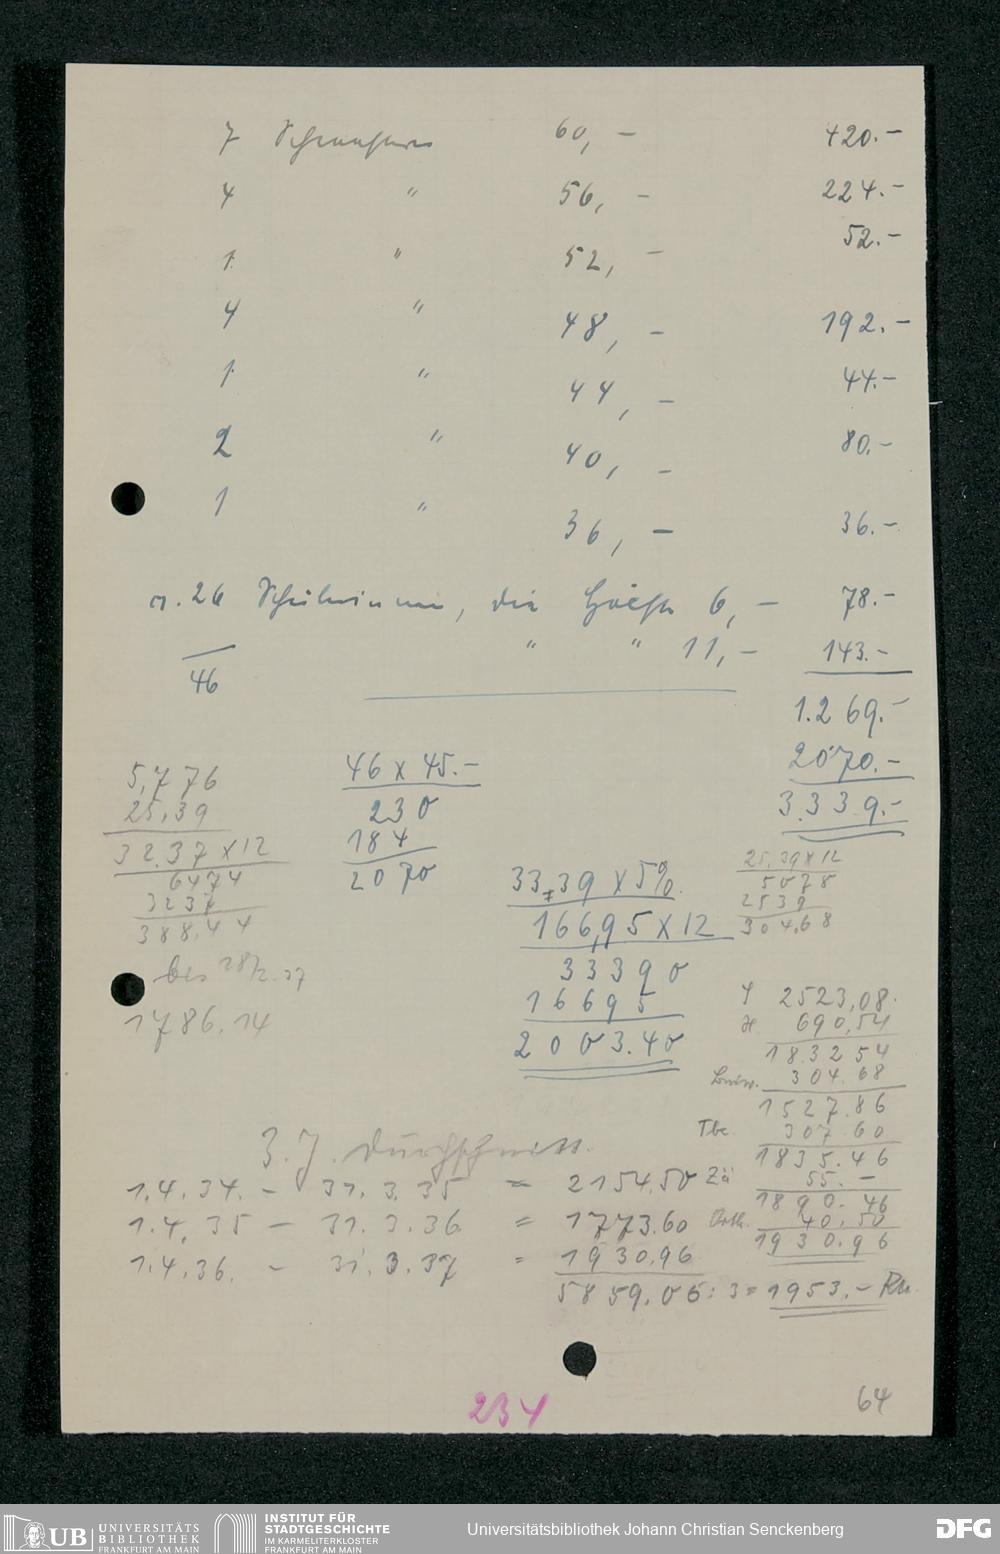 7 Schwestern 60,- 420.-
4 " 56,- 224.-
1 " 52,- 52.-
4 " 48,- 192.-
1 " 44,- 44.-
2 " 40,- 80.-
1 " 36,- 36.-
26 Schülerinnen, die Hälfte 6,- 78.-
" " 11,- 143.-
46
1.269.-
2070.-
3.339.-
5,776
25,39
32.37 x 12
6474
3237
388,44
bis 28/2.37
1786.14
46 x 45.-
230
184
2070
33,39 x 5%
166,95 x 12
33390
16695
2003.40
25,39 x 12
5078
2539
304,68
2523,08.
690,54
1832 54
304.68
1527.86
Tbc. 307.60
1835.46
Zä 55.-
1890.46
Orth. 40,50
1930.96
3. J. Durchschnitt.
1.4.34. - 31.3.35 = 2154.50
1.4.35 - 31.3.36 = 1773.60
1.4.36. - 31.3.37 = 1930,96
5859.06 : 3 = 1953.- Rm.
234
64
UB UNIVERSITÄTS
BIBLIOTHEK
FRANKFURT AM MAIN
INSTITUT FÜR
STADTGESCHICHTE
IM KARMELITERKLOSTER
FRANKFURT AM MAIN
Universitätsbibliothek Johann Christian Senckenberg
DFG